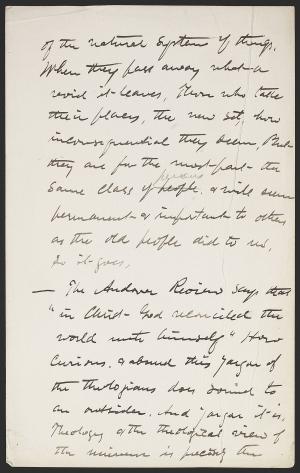 of the natural system of things.
When they pass away what a
void it leaves, Those who take
their places, the new set, how
inconsequential they seem But
they are for the most part the
same class of people persons & will seem
permanent & important to others
as the old people did to us,
So it goes.
— The Andover Review says that
"in Christ God reconciled the
world unto himself" How
Curious & absurd this jargon of
the theologians does sound to
an outsider. And jargon it is,
Theology & the theological view of
the universe is passing the